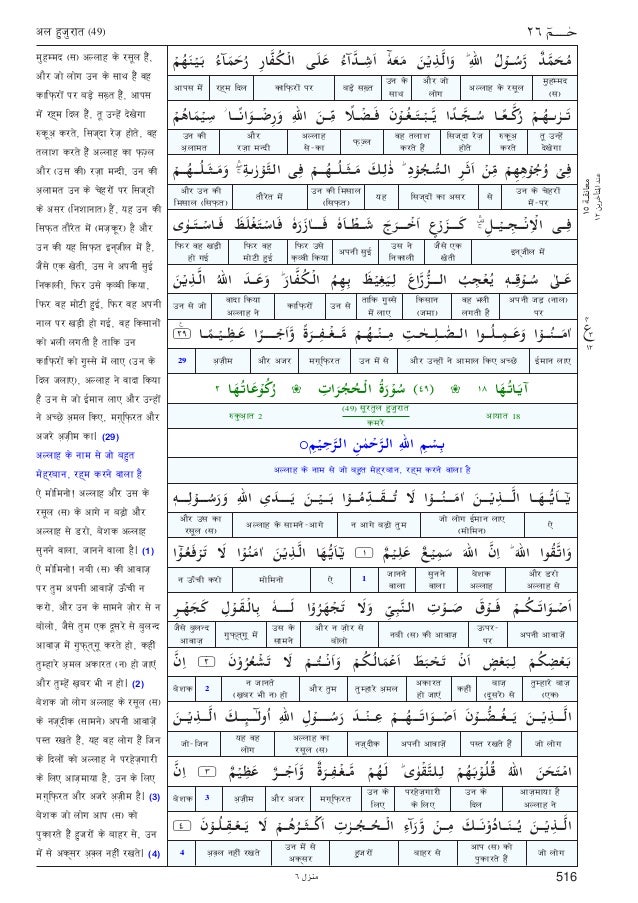 अल हुजुरात (49)
حٰـمٓ ٢٦
मुहम्मद (स) अल्लाह के रसूल हैं,
और जो लोग उन के साथ हैं वह
काफ़िरों पर बड़े सख़्त हैं, आपस
में रह्म दिल हैं, तू उन्हें देखेगा
रुकूअ़ करते, सिज्दा रेज़ होते, वह
तलाश करते हैं अल्लाह का फज़्ल
और (उस की) रज़ा मन्दी, उन की
अ़लामत उन के चेहरों पर सिज्दों
के असर (निशानात) हैं, यह उन की
सिफ़त तौरेत में (मज़्कूर) है और
उन की यह सिफ़त इन्जील में है,
जैसे एक खेती, उस ने अपनी सुई
निकाली, फिर उसे क़व्वी किया,
फिर वह मोटी हुई, फिर वह अपनी
नाल पर खड़ी हो गई, वह किसानों
को भली लगती है ताकि उन
काफ़िरों को गुस्से में लाए (उन के
दिल जलाए), अल्लाह ने वादा किया
है उन से जो ईमान लाए और उन्हों
ने अच्छे अ़मल किए, मग़्फ़िरत और
अजरे अ़ज़ीम का। (29)
अल्लाह के नाम से जो बहुत
मेहरबान, रह्म करने वाला है
ऐ मोमिनो! अल्लाह और उस के
रसूल (स) के आगे न बढ़ो और
अल्लाह से डरो, बेशक अल्लाह
सुनने वाला, जानने वाला है। (1)
ऐ मोमिनो! नबी (स) की आवाज़
पर तुम अपनी आवाज़ें ऊँची न
करो, और उन के सामने ज़ोर से न
बोलो, जैसे तुम एक दूसरे से बुलन्द
आवाज़ में गुफ़्त्गू करते हो, कहीं
तुम्हारे अ़मल अकारत (न) हो जाएं
और तुम्हें ख़बर भी न हो। (2)
बेशक जो लोग अल्लाह के रसूल (स)
के नज़्दीक (सामने) अपनी आवाज़ें
पस्त रखते हैं, यह वह लोग हैं जिन
के दिलों को अल्लाह ने परहेज़गारी
के लिए आज़माया है, उन के लिए
मग़्फ़िरत और अजरे अ़ज़ीम है। (3)
बेशक जो लोग आप (स) को
पुकारते हैं हुजरों के बाहर से, उन
में से अक्सर अ़क़्ल नहीं रखते। (4)
مُحَمَّدٌ رَّسُوْلُ اللهِ ؕ وَالَّذِيْنَ مَعَهٗٓ اَشِدَّآءُ عَلَى الْكُفَّارِ رُحَمَآءُ بَيْنَهُمْ
मुहम्मद (स) | अल्लाह के रसूल | और जो लोग | उन के साथ | बड़े सख़्त | काफ़िरों पर | रह्म दिल | आपस में
تَرٰىهُمْ رُكَّعًا سُجَّدًا يَّبْتَغُوْنَ فَضْلًا مِّنَ اللهِ وَرِضْوَانًا سِيْمَاهُمْ
तू उन्हें देखेगा | रुकूअ़ करते | सिज्दा रेज़ होते | वह तलाश करते हैं | फज़्ल | अल्लाह से-का | और रज़ा मन्दी | उन की अ़लामत
فِيْ وُجُوْهِهِمْ مِّنْ اَثَرِ السُّجُوْدِ ؕ ذٰلِكَ مَثَلُهُمْ فِي التَّوْرٰىةِ وَمَثَلُهُمْ
उन के चेहरों में-पर | से | सिज्दों का असर | यह | उन की मिसाल (सिफ़त) | तौरेत में | और उन की मिसाल (सिफ़त)
فِي الْاِنْجِيْلِ كَزَرْعٍ اَخْرَجَ شَطْـَٔهٗ فَاٰزَرَهٗ فَاسْتَغْلَظَ فَاسْتَوٰى
इन्जील में | जैसे एक खेती | उस ने निकाली | अपनी सुई | फिर उसे क़व्वी किया | फिर वह मोटी हुई | फिर वह खड़ी हो गई
عَلٰى سُوْقِهٖ يُعْجِبُ الزُّرَّاعَ لِيَغِيْظَ بِهِمُ الْكُفَّارَ ؕ وَعَدَ اللهُ الَّذِيْنَ
अपनी जड़ (नाल) पर | वह भली लगती है | किसान (जमा) | ताकि गुस्से में लाए | उन से | काफ़िरों | वादा किया अल्लाह ने | उन से जो
اٰمَنُوْا وَعَمِلُوا الصّٰلِحٰتِ مِنْهُمْ مَّغْفِرَةً وَّاَجْرًا عَظِيْمًا ٢٩
ईमान लाए | और उन्हों ने आमाल किए अच्छे | उन में से | मग़्फ़िरत | और अजर | अ़ज़ीम | 29
اٰيَاتُهَا ١٨ (٤٩) سُوْرَةُ الْحُجُرَاتِ رُكُوْعَاتُهَا ٢
आयात 18 | (49) सूरतुल हुजुरात कमरे | रुकुआ़त 2
بِسْمِ اللهِ الرَّحْمٰنِ الرَّحِيْمِ
अल्लाह के नाम से जो बहुत मेहरबान, रह्म करने वाला है
يٰٓاَيُّهَا الَّذِيْنَ اٰمَنُوْا لَا تُقَدِّمُوْا بَيْنَ يَدَيِ اللهِ وَرَسُوْلِهٖ
ऐ | जो लोग ईमान लाए (मोमिनीन) | न आगे बढ़ो तुम | अल्लाह के सामने-आगे | और उस का रसूल (स)
وَاتَّقُوا اللهَ ؕ اِنَّ اللهَ سَمِيْعٌ عَلِيْمٌ ١ يٰٓاَيُّهَا الَّذِيْنَ اٰمَنُوْا لَا تَرْفَعُوْٓا
और डरो अल्लाह से | बेशक अल्लाह | सुनने वाला | जानने वाला | 1 | ऐ | मोमिनो | न ऊँची करो
اَصْوَاتَكُمْ فَوْقَ صَوْتِ النَّبِيِّ وَلَا تَجْهَرُوْا لَهٗ بِالْقَوْلِ كَجَهْرِ
अपनी आवाज़ें | ऊपर-पर | नबी (स) की आवाज़ | और न ज़ोर से बोलो | उस के सामने | गुफ़्त्गू में | जैसे बुलन्द आवाज़
بَعْضِكُمْ لِبَعْضٍ اَنْ تَحْبَطَ اَعْمَالُكُمْ وَاَنْتُمْ لَا تَشْعُرُوْنَ ٢ اِنَّ
तुम्हारे बाज़ (एक) | बाज़ (दूसरे) से | कहीं | अकारत हो जाएं | तुम्हारे अ़मल | और तुम | न जानते (ख़बर भी न) हो | 2 | बेशक
الَّذِيْنَ يَغُضُّوْنَ اَصْوَاتَهُمْ عِنْدَ رَسُوْلِ اللهِ اُولٰٓئِكَ الَّذِيْنَ
जो लोग | पस्त रखते हैं | अपनी आवाज़ें | नज़्दीक | अल्लाह का रसूल (स) | यह वह लोग | जो-जिन
امْتَحَنَ اللهُ قُلُوْبَهُمْ لِلتَّقْوٰى ؕ لَهُمْ مَّغْفِرَةٌ وَّاَجْرٌ عَظِيْمٌ ٣ اِنَّ
आज़माया है अल्लाह ने | उन के दिल | परहेज़गारी के लिए | उन के लिए | मग़्फ़िरत | और अजर | अ़ज़ीम | 3 | बेशक
الَّذِيْنَ يُنَادُوْنَكَ مِنْ وَّرَآءِ الْحُجُرٰتِ اَكْثَرُهُمْ لَا يَعْقِلُوْنَ ٤
जो लोग | आप (स) को पुकारते हैं | बाहर से | हुजरों | उन में से अक्सर | अ़क़्ल नहीं रखते | 4
معانقة ١٥
عند المتاخرين ١٢
ع
١٢
منزل ٦
516